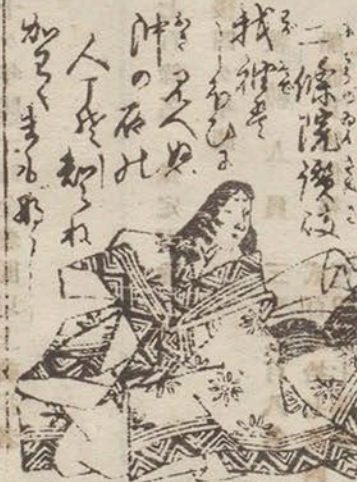 二條院讃岐
我袖は
しほひに
見えぬ
沖の石の
人こそ知らね
かわくまもなし